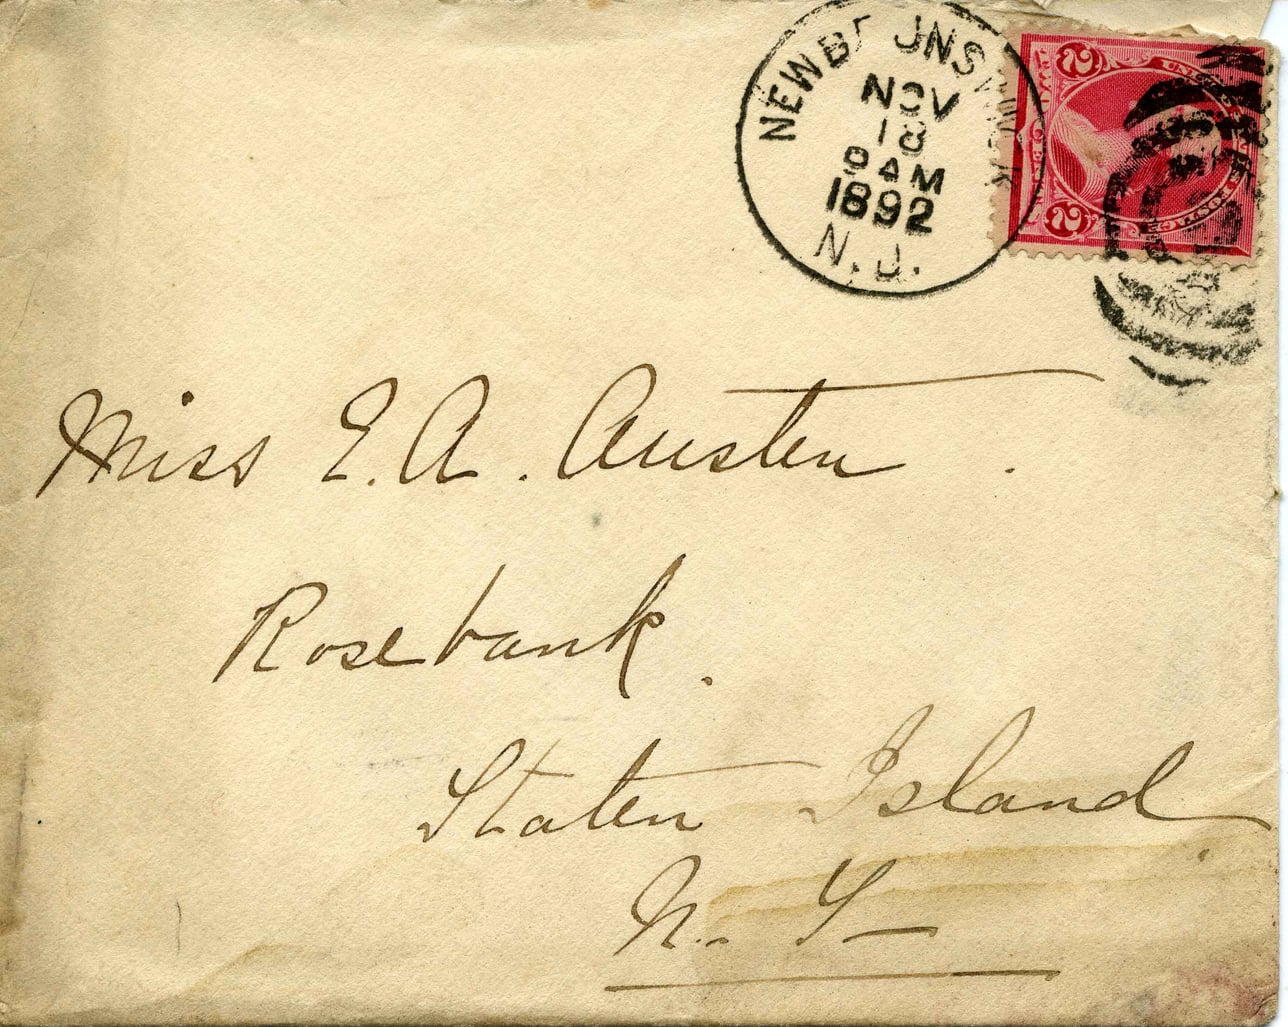 NEW BRUNSWICK
NOV
18
9 AM
1892
N.J.
2 2
UNITED STATES POSTAGE
Miss E. A. Austen.
Rosebank.
Staten Island
N. Y